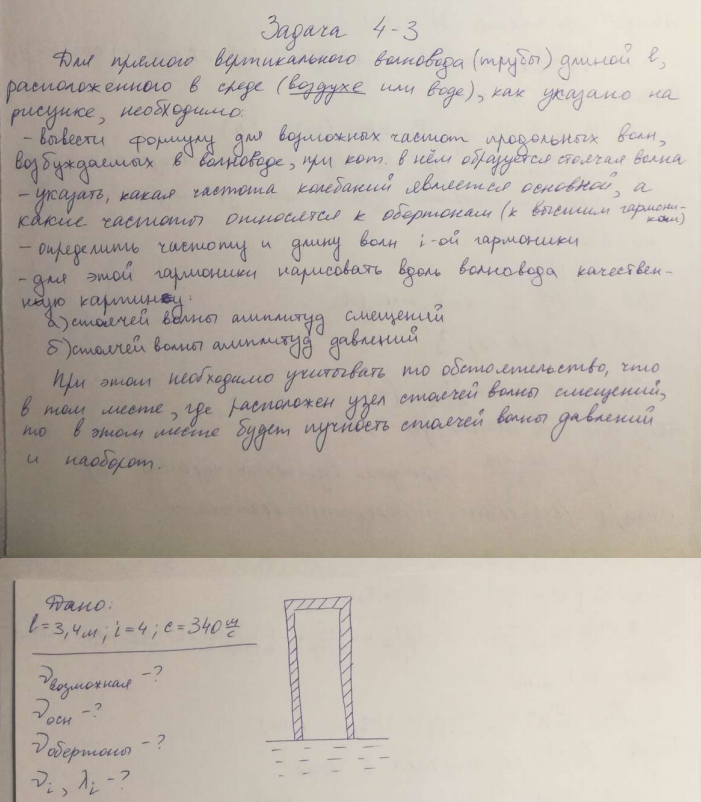 Задача 4-3
Для прямого вертикального волновода (трубы) длиной l,
расположенного в среде (воздухе или воде), как указано на
рисунке, необходимо:
- вывести формулу для возможных частот продольных волн,
возбуждаемых в волноводе, при кот. в нём образуется стоячая волна
- указать, какая частота колебаний является основной, а
какие частоты относятся к обертонам (к высшим гармони-
кам)
- определить частоту и длину волн i-ой гармоники
- для этой гармоники нарисовать вдоль волновода качествен-
ную картинку:
а) стоячей волны амплитуд смещений
б) стоячей волны амплитуд давлений
При этом необходимо учитывать то обстоятельство, что
в том месте, где расположен узел стоячей волны смещений,
то в этом месте будет пучность стоячей волны давлений
и наоборот.
Дано:
l = 3,4 м; i = 4; c = 340 м/с
ν возможная - ?
ν осн - ?
ν обертоны - ?
ν i, λ i - ?